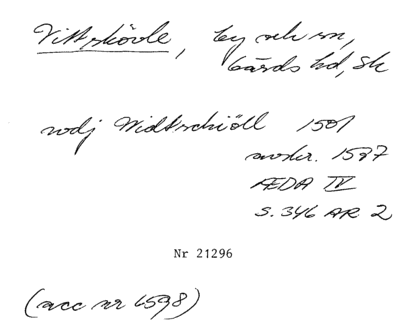 Vittskövle, by och sn,
Gärds hd, Sk
wdj Widtschiöll 1581
avskr. 1587
ÆDA IV
S. 346 AR 2
Nr 21296
(acc nr 6598)